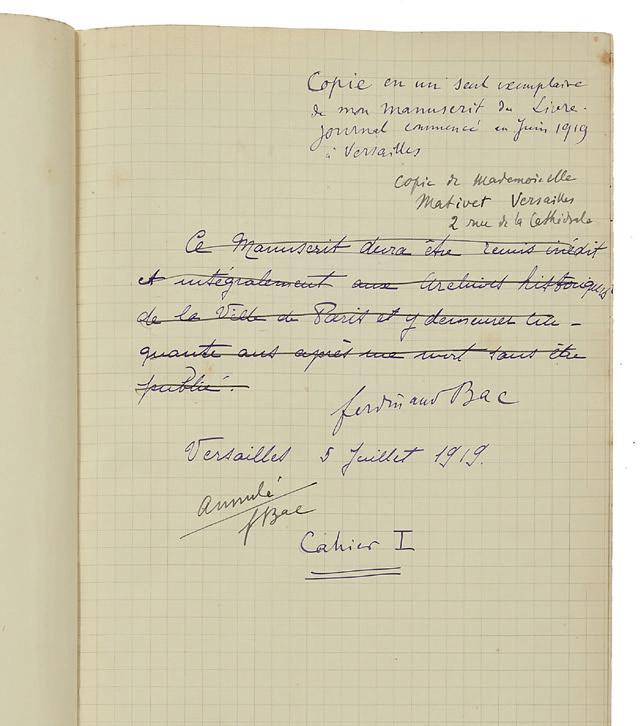 Copie en un seul exemplaire
de mon manuscrit du Livre-
Journal commencé en Juin 1919
à Versailles
Copie de Mademoiselle
Mativet Versailles
2 rue de la Cathédrale
Ce Manuscrit devra être remis inédit
et intégralement aux Archives historiques
de la Ville de Paris et y demeurer cin-
quante ans après ma mort sans être
publié.
Ferdinand Bac
Versailles 5 Juillet 1919.
Annulé
F Bac
Cahier I